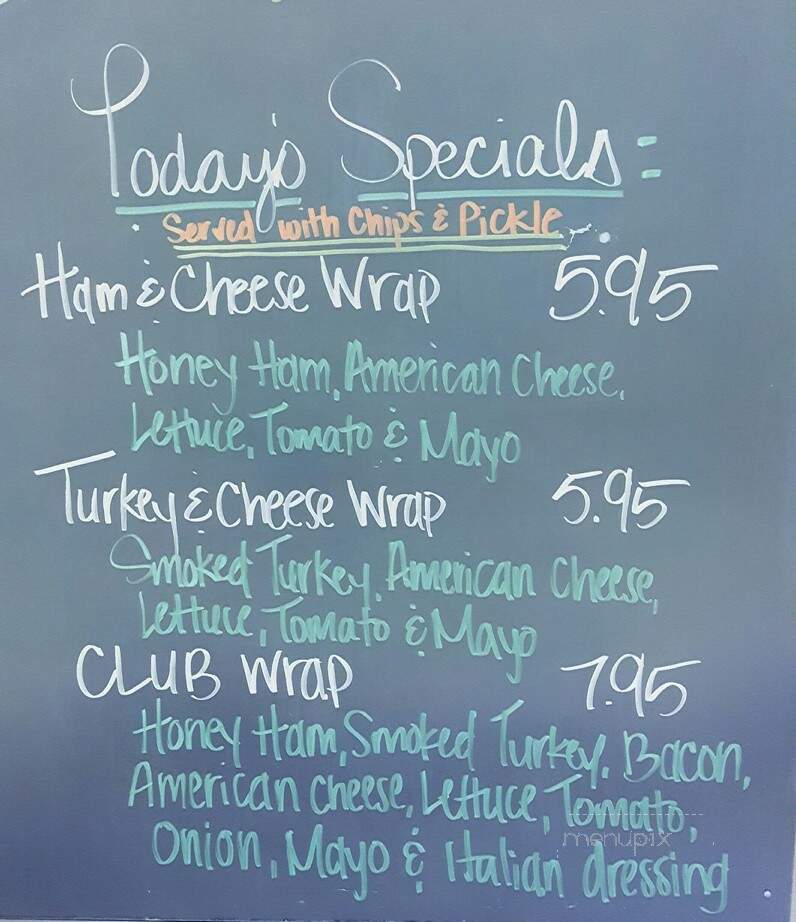 Today's Specials:
Served with Chips & Pickle
Ham & Cheese Wrap 5.95
Honey Ham, American Cheese,
Lettuce, Tomato & Mayo
Turkey & Cheese Wrap 5.95
Smoked Turkey, American Cheese,
Lettuce, Tomato & Mayo
CLUB Wrap 7.95
Honey Ham, Smoked Turkey, Bacon,
American Cheese, Lettuce, Tomato,
Onion, Mayo & Italian dressing
menupix